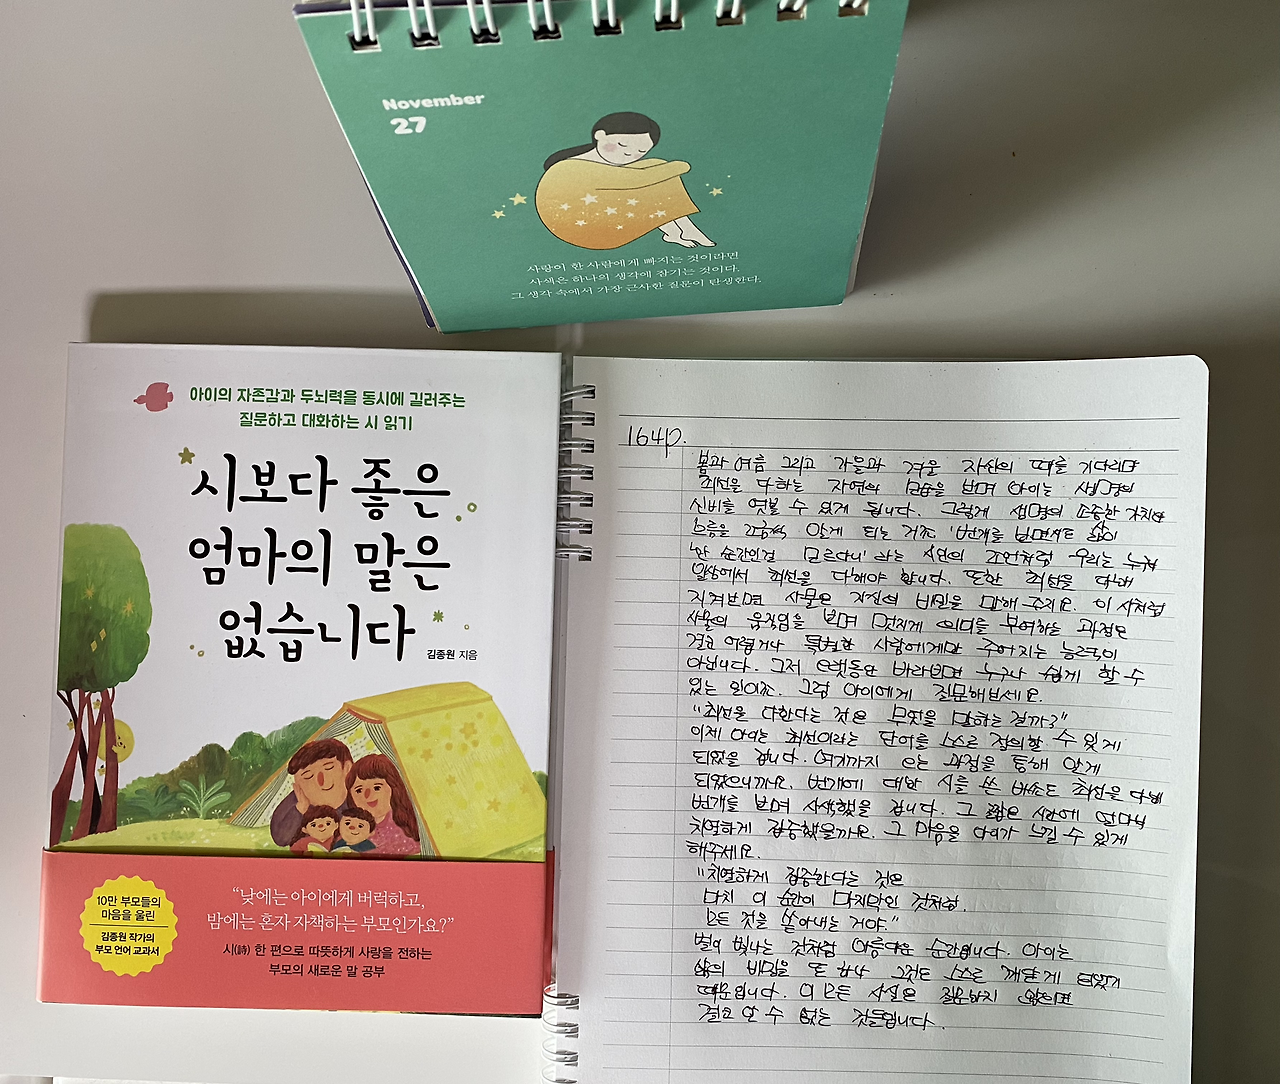 November
27
사랑이 한 사람에게 빠지는 것이라면
사색은 하나의 생각에 잠기는 것이다.
그 생각 속에서 가장 근사한 질문이 탄생한다.
아이의 자존감과 두뇌력을 동시에 길러주는
질문하고 대화하는 시 읽기
시보다 좋은
엄마의 말은
없습니다
김종원 지음
10만 부모들의
마음을 울린
김종원 작가의
부모 언어 교과서
“낮에는 아이에게 버럭하고,
밤에는 혼자 자책하는 부모인가요?”
시(詩) 한 편으로 따뜻하게 사랑을 전하는
부모의 새로운 말 공부
164p.
봄과 여름 그리고 가을과 겨울 자신의 때를 기다리며
최선을 다하는 자연의 모습을 보며 아이는 생명의
신비를 엿볼 수 있게 됩니다. 그렇게 생명의 소중한 가치와
흐름을 조금씩 알게 되는 거죠. '번개를 보면서도 삶이
한 순간인걸 모르다니' 라는 시인의 조언처럼 우리는 누구나
일상에서 최선을 다해야 합니다. 또한 최선을 다해
지켜보면 사물은 자신의 비밀을 말해 주지요. 이 시처럼
사물의 움직임을 보며 멋지게 의미를 부여하는 과정은
결코 어렵거나 특별한 사람에게만 주어지는 능력이
아닙니다. 그저 오랫동안 바라보면 누구나 쉽게 할 수
있는 일이죠. 그럼 아이에게 질문해보세요.
"최선을 다한다는 것은 무엇을 말하는 걸까?"
이제 아이는 최선이라는 단어를 스스로 정의할 수 있게
되었을 겁니다. 여기까지 오는 과정을 통해 알게
되었으니까요. 번개에 대한 시를 쓴 바쇼도 최선을 다해
번개를 보며 사색했을 겁니다. 그 짧은 시간에 얼마나
치열하게 집중했을까요. 그 마음을 아이가 느낄 수 있게
해주세요.
"치열하게 집중한다는 것은
마치 이 순간이 마지막인 것처럼
모든 것을 쏟아내는 거야."
별이 빛나는 것처럼 아름다운 순간입니다. 아이는
삶의 비밀을 또 하나 그것도 스스로 깨닫게 되었기
때문입니다. 이 모든 사실은 질문하지 않으면
결코 알 수 없는 것들입니다.